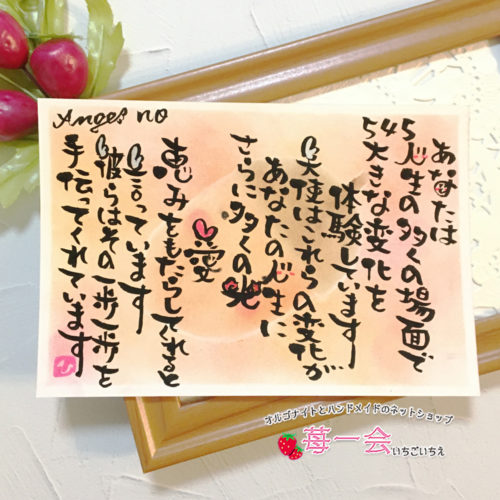 Angel no
545
あなたは
人生の多くの場面で
大きな変化を
体験しています
天使はこれらの変化が
あなたの人生に
さらに多くの光
愛
恵みをもたらしてくれると
言っています
彼らはその一歩一歩を
手伝ってくれています
オルゴナイトとハンドメイドのネットショップ
苺一会 いちごいちえ